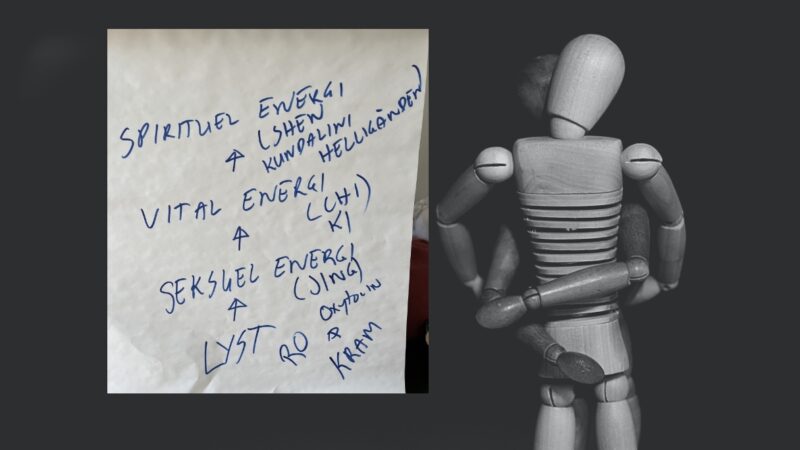 SPIRITUEL ENERGI
↑ (SHEN
KUNDALINI
HELLIGÅNDEN)
VITAL ENERGI
↑ (CHI)
KI
SEKSUEL ENERGI
↑ (JING)
LYST RO OXYTOCIN
↑
KRAM